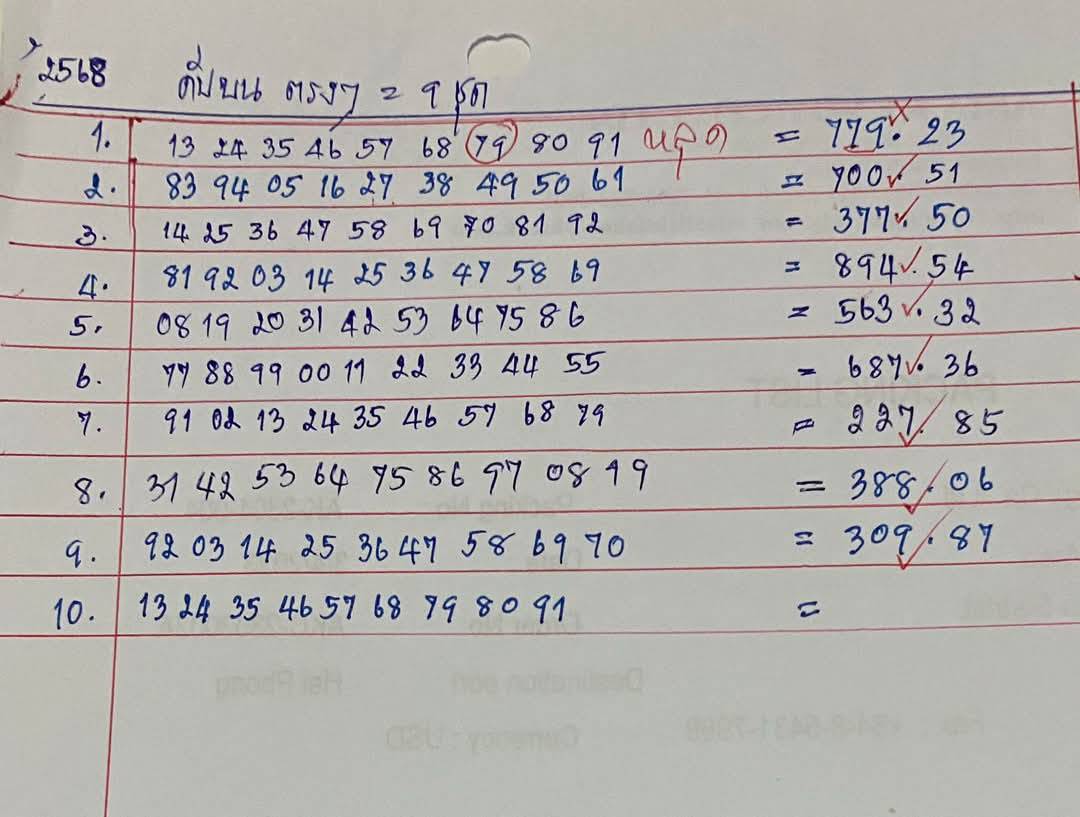 2568 ดับบน ตรงๆ = 9 ชุด
1. 13 24 35 46 57 68 79 80 91 หลุด = 779. 23
2. 83 94 05 16 27 38 49 50 61 = 700. 51
3. 14 25 36 47 58 69 70 81 92 = 377. 50
4. 81 92 03 14 25 36 47 58 69 = 894. 54
5. 08 19 20 31 42 53 64 75 86 = 563. 32
6. 77 88 99 00 11 22 33 44 55 = 687. 36
7. 91 02 13 24 35 46 57 68 79 = 227. 85
8. 31 42 53 64 75 86 97 08 19 = 388. 06
9. 92 03 14 25 36 47 58 69 70 = 309. 87
10. 13 24 35 46 57 68 79 80 91 =